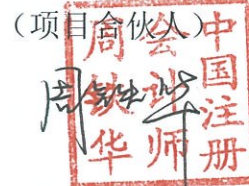 （项目合伙人）
中国注册
会计师
周铁华
周铁华